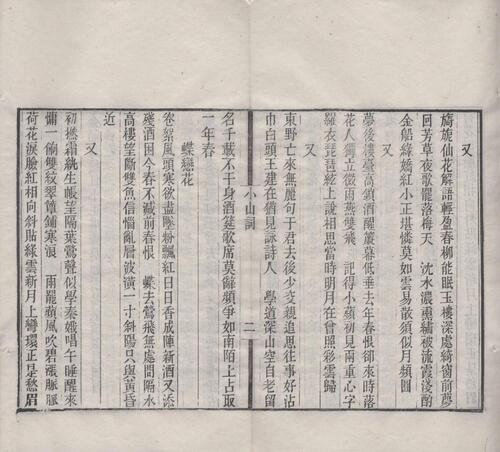 又
旖旎仙花解語輕盈春柳能眠玉樓深處綺窗前夢
回芳草夜歌罷落梅天　沈水濃熏繡被流霞淺酌
金船綠嬌紅小正堪憐莫如雲易散須似月頻圓
又
夢後樓臺高鎖酒醒簾幕低垂去年春恨卻來時落
花人獨立微雨燕雙飛　記得小蘋初見兩重心字
羅衣琵琶絃上說相思當時明月在曾照彩雲歸
又
東野亡來無麗句于君去後少交親追思往事好沾
巾白頭王建在猶見詠詩人　學道深山空自老留
小山詞　二
名千載不干身酒筵歌席莫辭頻爭如南陌上占取
一年春
蝶戀花
卷絮風頭寒欲盡墜粉飄紅日日香成陣新酒又添
殘酒困今春不減前春恨　蝶去鶯飛無處問隔水
高樓望斷雙魚信惱亂層波橫一寸斜陽只與黃昏
近
又
初撚霜紈生悵望隔葉鶯聲似學秦娥唱午睡醒來
慵一餉雙紋翠簟鋪寒浪　雨罷蘋風吹碧漲脈脈
荷花淚臉紅相向斜貼綠雲新月上彎環正是愁眉